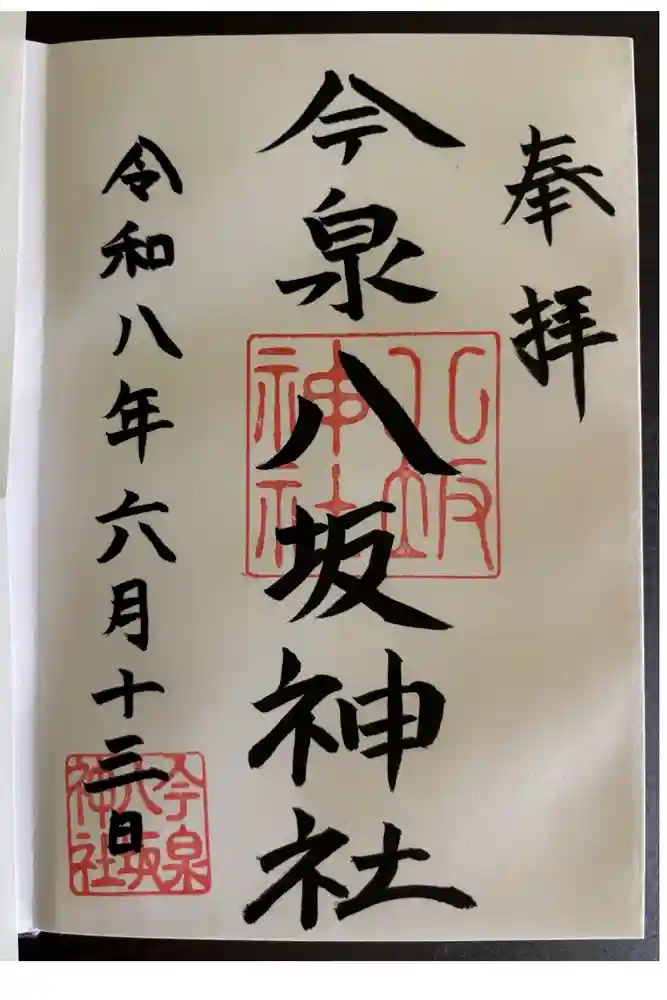 奉拝
今泉八坂神社
八坂神社
令和八年六月十三日
今泉八坂神社